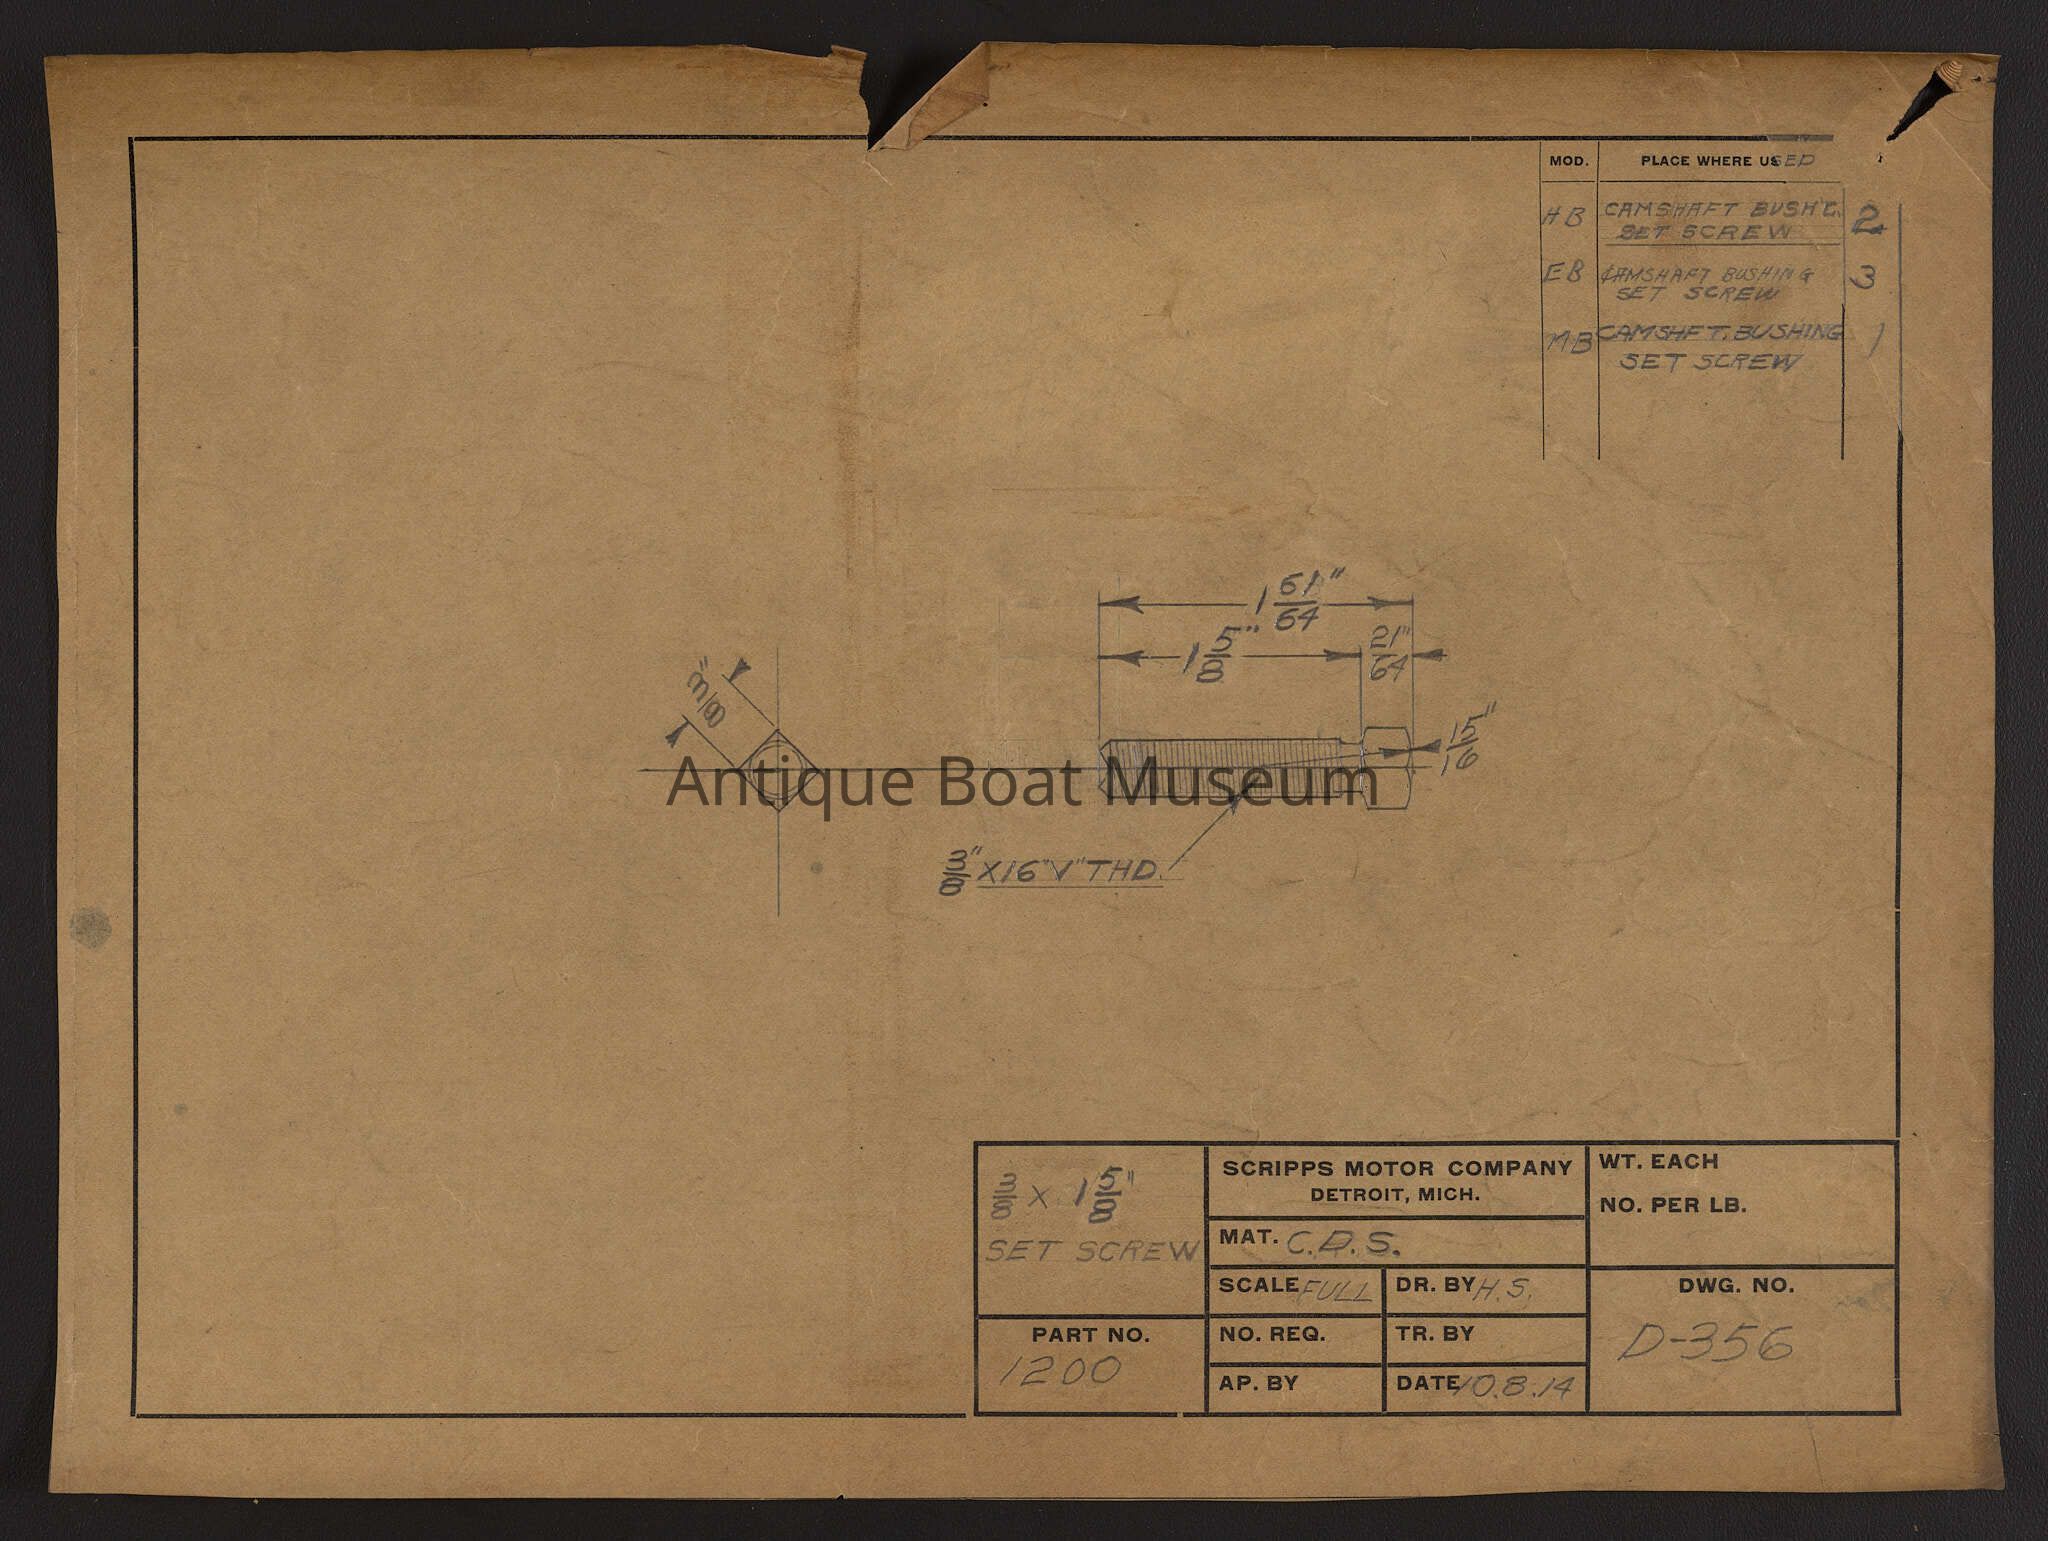 MOD. PLACE WHERE USED
HB CAMSHAFT BUSH'G. 2
SET SCREW
EB CAMSHAFT BUSHING 3
SET SCREW
MB CAMSHFT. BUSHING 1
SET SCREW
1 61/64"
1 5/8" 21/64"
3/8"
15/16"
Antique Boat Museum
3/8" X 16 "V" THD.
3/8 X 1 5/8"
SET SCREW
PART NO.
1200
SCRIPPS MOTOR COMPANY
DETROIT, MICH.
MAT. C.D.S.
SCALE FULL DR. BY H.S.
NO. REQ. TR. BY
AP. BY DATE 10.8.14
WT. EACH
NO. PER LB.
DWG. NO.
D-356